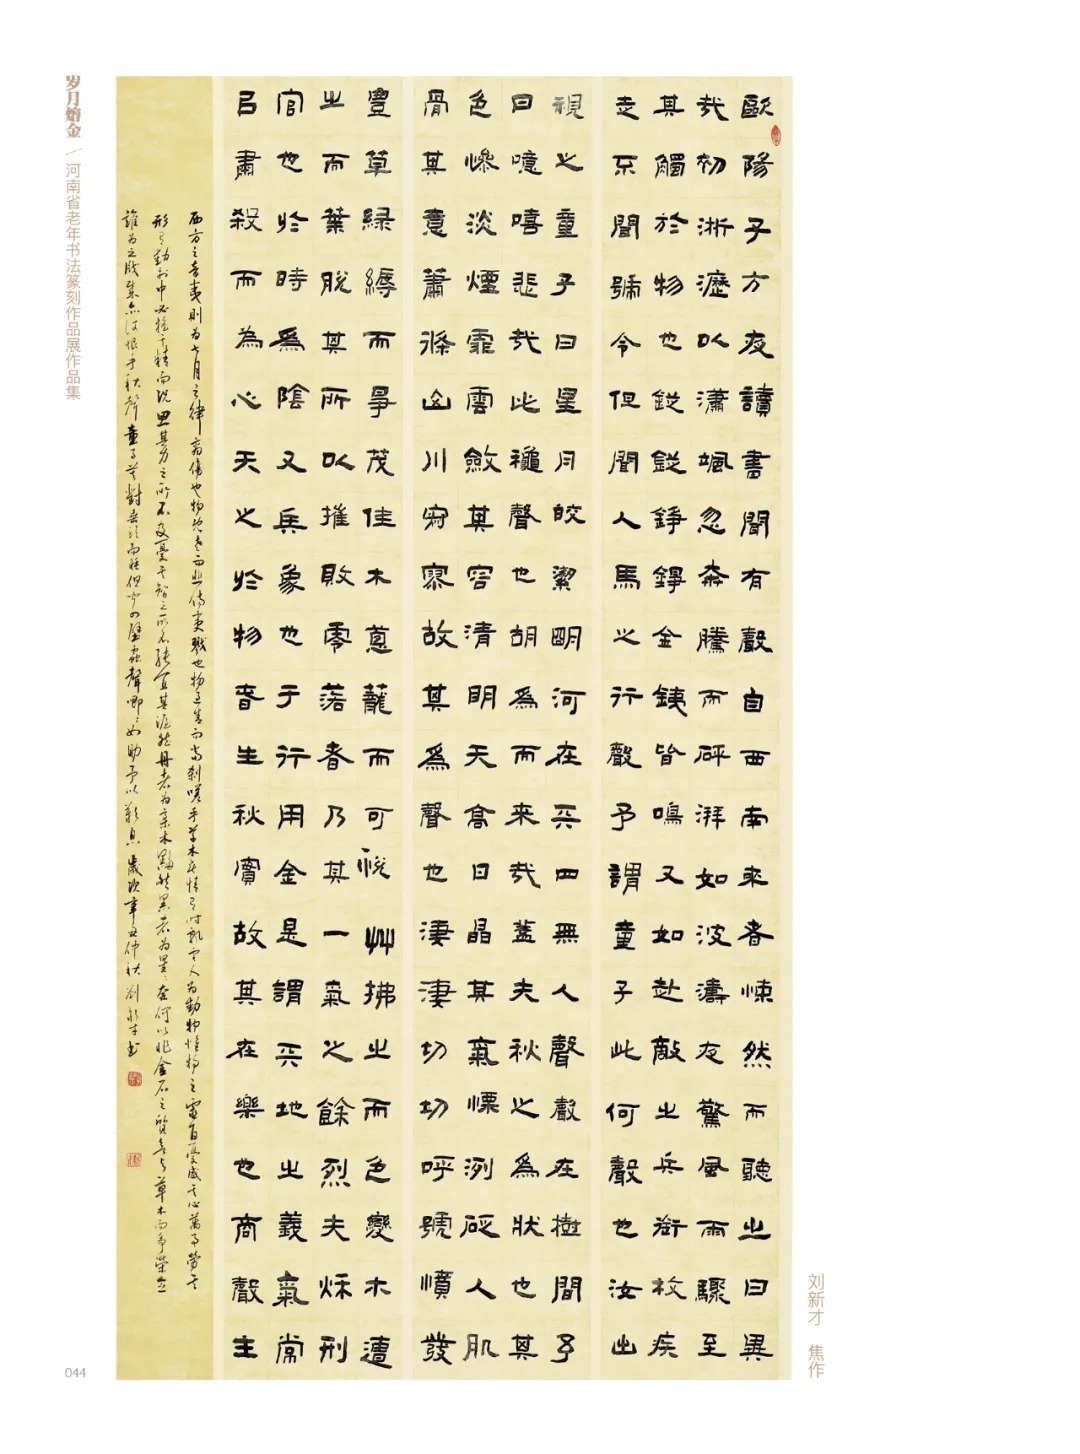 歐陽子方夜讀書聞有聲自西南來者悚然而聽之曰異
哉初淅瀝以瀟颯忽奔騰而砰湃如波濤夜驚風雨驟至
其觸於物也鏦鏦錚錚金鐵皆鳴又如赴敵之兵銜枚疾
走不聞號令但聞人馬之行聲予謂童子此何聲也汝出
視之童子曰星月皎潔明河在天四無人聲聲在樹間予
曰噫嘻悲哉此穐聲也胡為而来哉蓋夫秋之為狀也其
色慘淡煙霏雲斂其容清明天高日晶其氣慄冽砭人肌
骨其意蕭條山川寂寥故其為聲也淒淒切切呼號憤發
豐草緑縟而爭茂佳木蔥蘢而可悅艸拂之而色變木遭
之而葉脫其所以摧敗零落者乃其一氣之餘烈夫秌刑
官也於時為陰又兵象也于行用金是謂天地之義氣常
以肅殺而為心天之於物春生秋實故其在樂也商聲主
西方之音夷則為七月之律商傷也物既老而悲傷夷戮也物過盛而當殺嗟乎草木無情有時飄零人為動物惟物之靈百憂感其心萬事勞其
形有動於中必搖其精而況思其力之所不及憂其智之所不能宜其渥然丹者為槁木黟然黑者為星星奈何以非金石之質欲與草木而爭榮念
誰為之戕賊亦何恨乎秋聲童子莫對垂頭而睡但聞四壁蟲聲唧唧如助予以歎息 歲次辛丑仲秋劉新才書
岁月熔金/河南省老年书法篆刻作品展作品集
刘新才 焦作
044